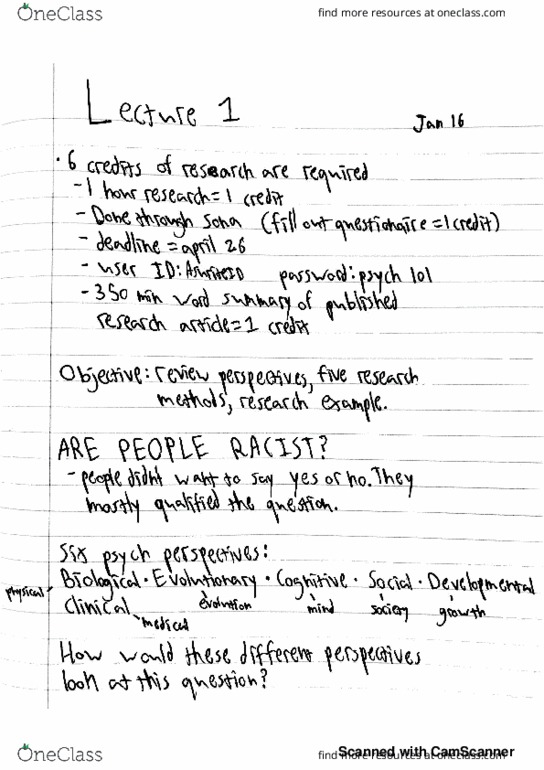 OneClass
find more resources at oneclass.com
Lecture 1
Jan 16
· 6 credits of research are required
- 1 hour research = 1 credit
- Done through sona (fill out questionaire = 1 credit)
- deadline = april 26
- user ID: AsuriteID password: psych 101
- 350 min word summary of published
research article = 1 credit
Objective: review perspectives, five research
methods, research example.
ARE PEOPLE RACIST?
- people didnt want to say yes or no. They
mostly qualified the question.
Six psych perspectives:
physical
Biological · Evolutionary · Cognitive · Social · Developmental
evolution mind society growth
Clinical
medical
How would these different perspectives
look at this question?
OneClass
find more resources at oneclass.com
Scanned with CamScanner